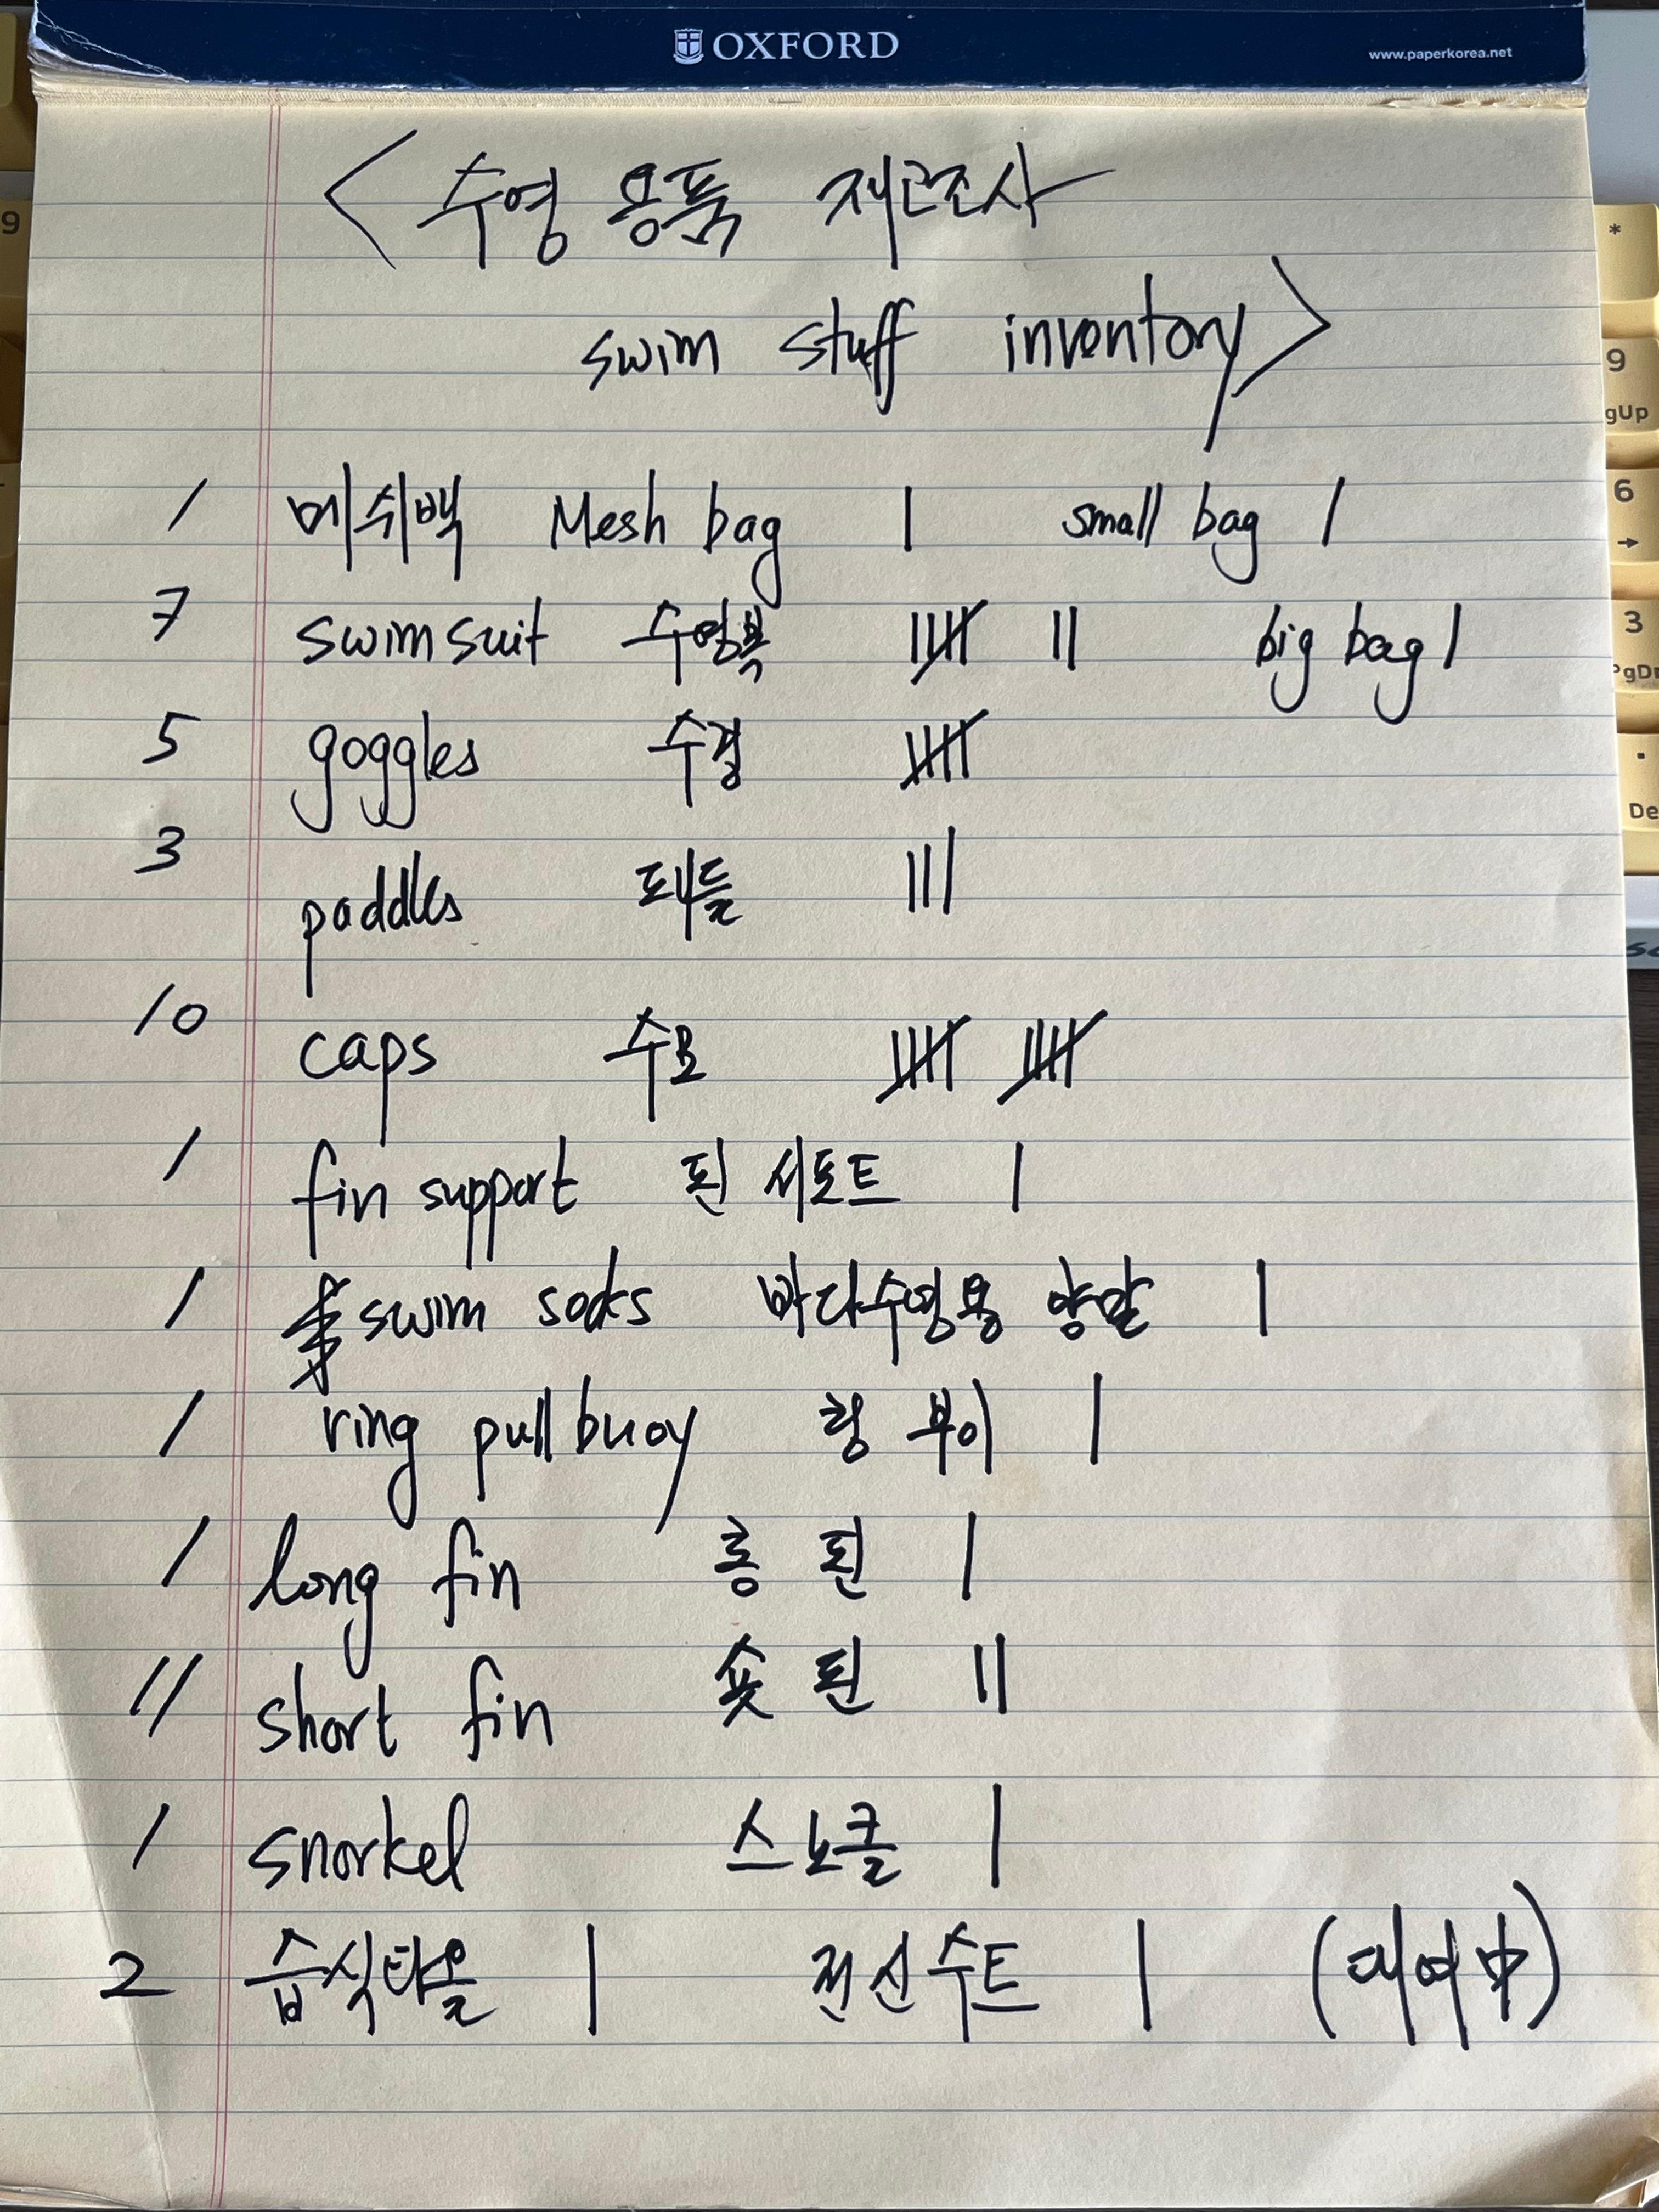 OXFORD www.paperkorea.net
<수영 용품 재고조사
swim stuff inventory>
1 메쉬백 Mesh bag | small bag |
7 swimsuit 수영복 |||| || big bag |
5 goggles 수경 ||||
3 paddles 패들 |||
10 caps 수모 |||| ||||
1 fin support 핀 서포트 |
1 swim socks 바다수영용 양말 |
1 ring pull buoy 링 부이 |
1 long fin 롱 핀 |
11 short fin 숏 핀 ||
1 snorkel 스노클 |
2 습식타올 | 전신수트 | (대여中)
9
*
9
gUp
6
→
3
PgDn
.
De